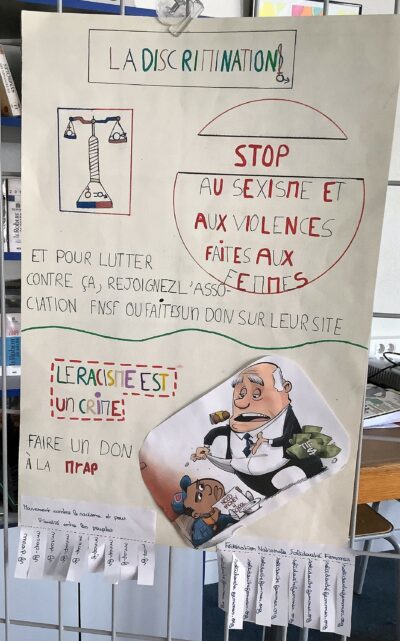 LA DISCRIMINATION!
STOP
AU SEXISME ET
AUX VIOLENCES
FAITES AUX
FEMMES
ET POUR LUTTER
CONTRE ÇA, REJOIGNEZ L'ASSO-
CIATION FNSF OU FAITES UN DON SUR LEUR SITE
LE RACISME EST
UN CRIME
FAIRE UN DON
À LA MRAP
Mouvement contre le racisme et pour
l'amitié entre les peuples
Fédération Nationale Solidarité Femmes